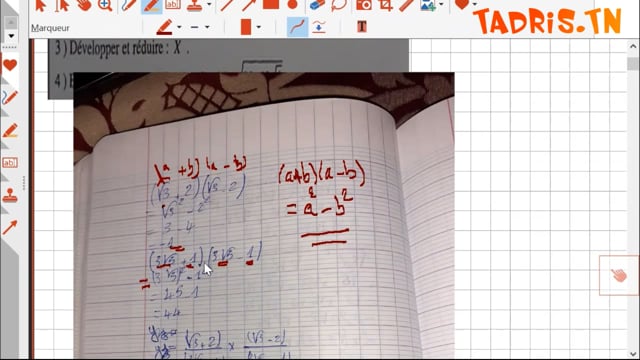 Marqueur
TADRIS.TN
3) Développer et réduire : X .
4)
(a + b) (a - b)
(√3 + 2) (√3 - 2)
= √3² - 2²
= 3 - 4
= -1
(3√5 + 1) (3√5 - 1)
= (3√5)² - 1²
= 45 - 1
= 44
(√3+2) × (√3-2)
(a+b)(a-b)
= a² - b²